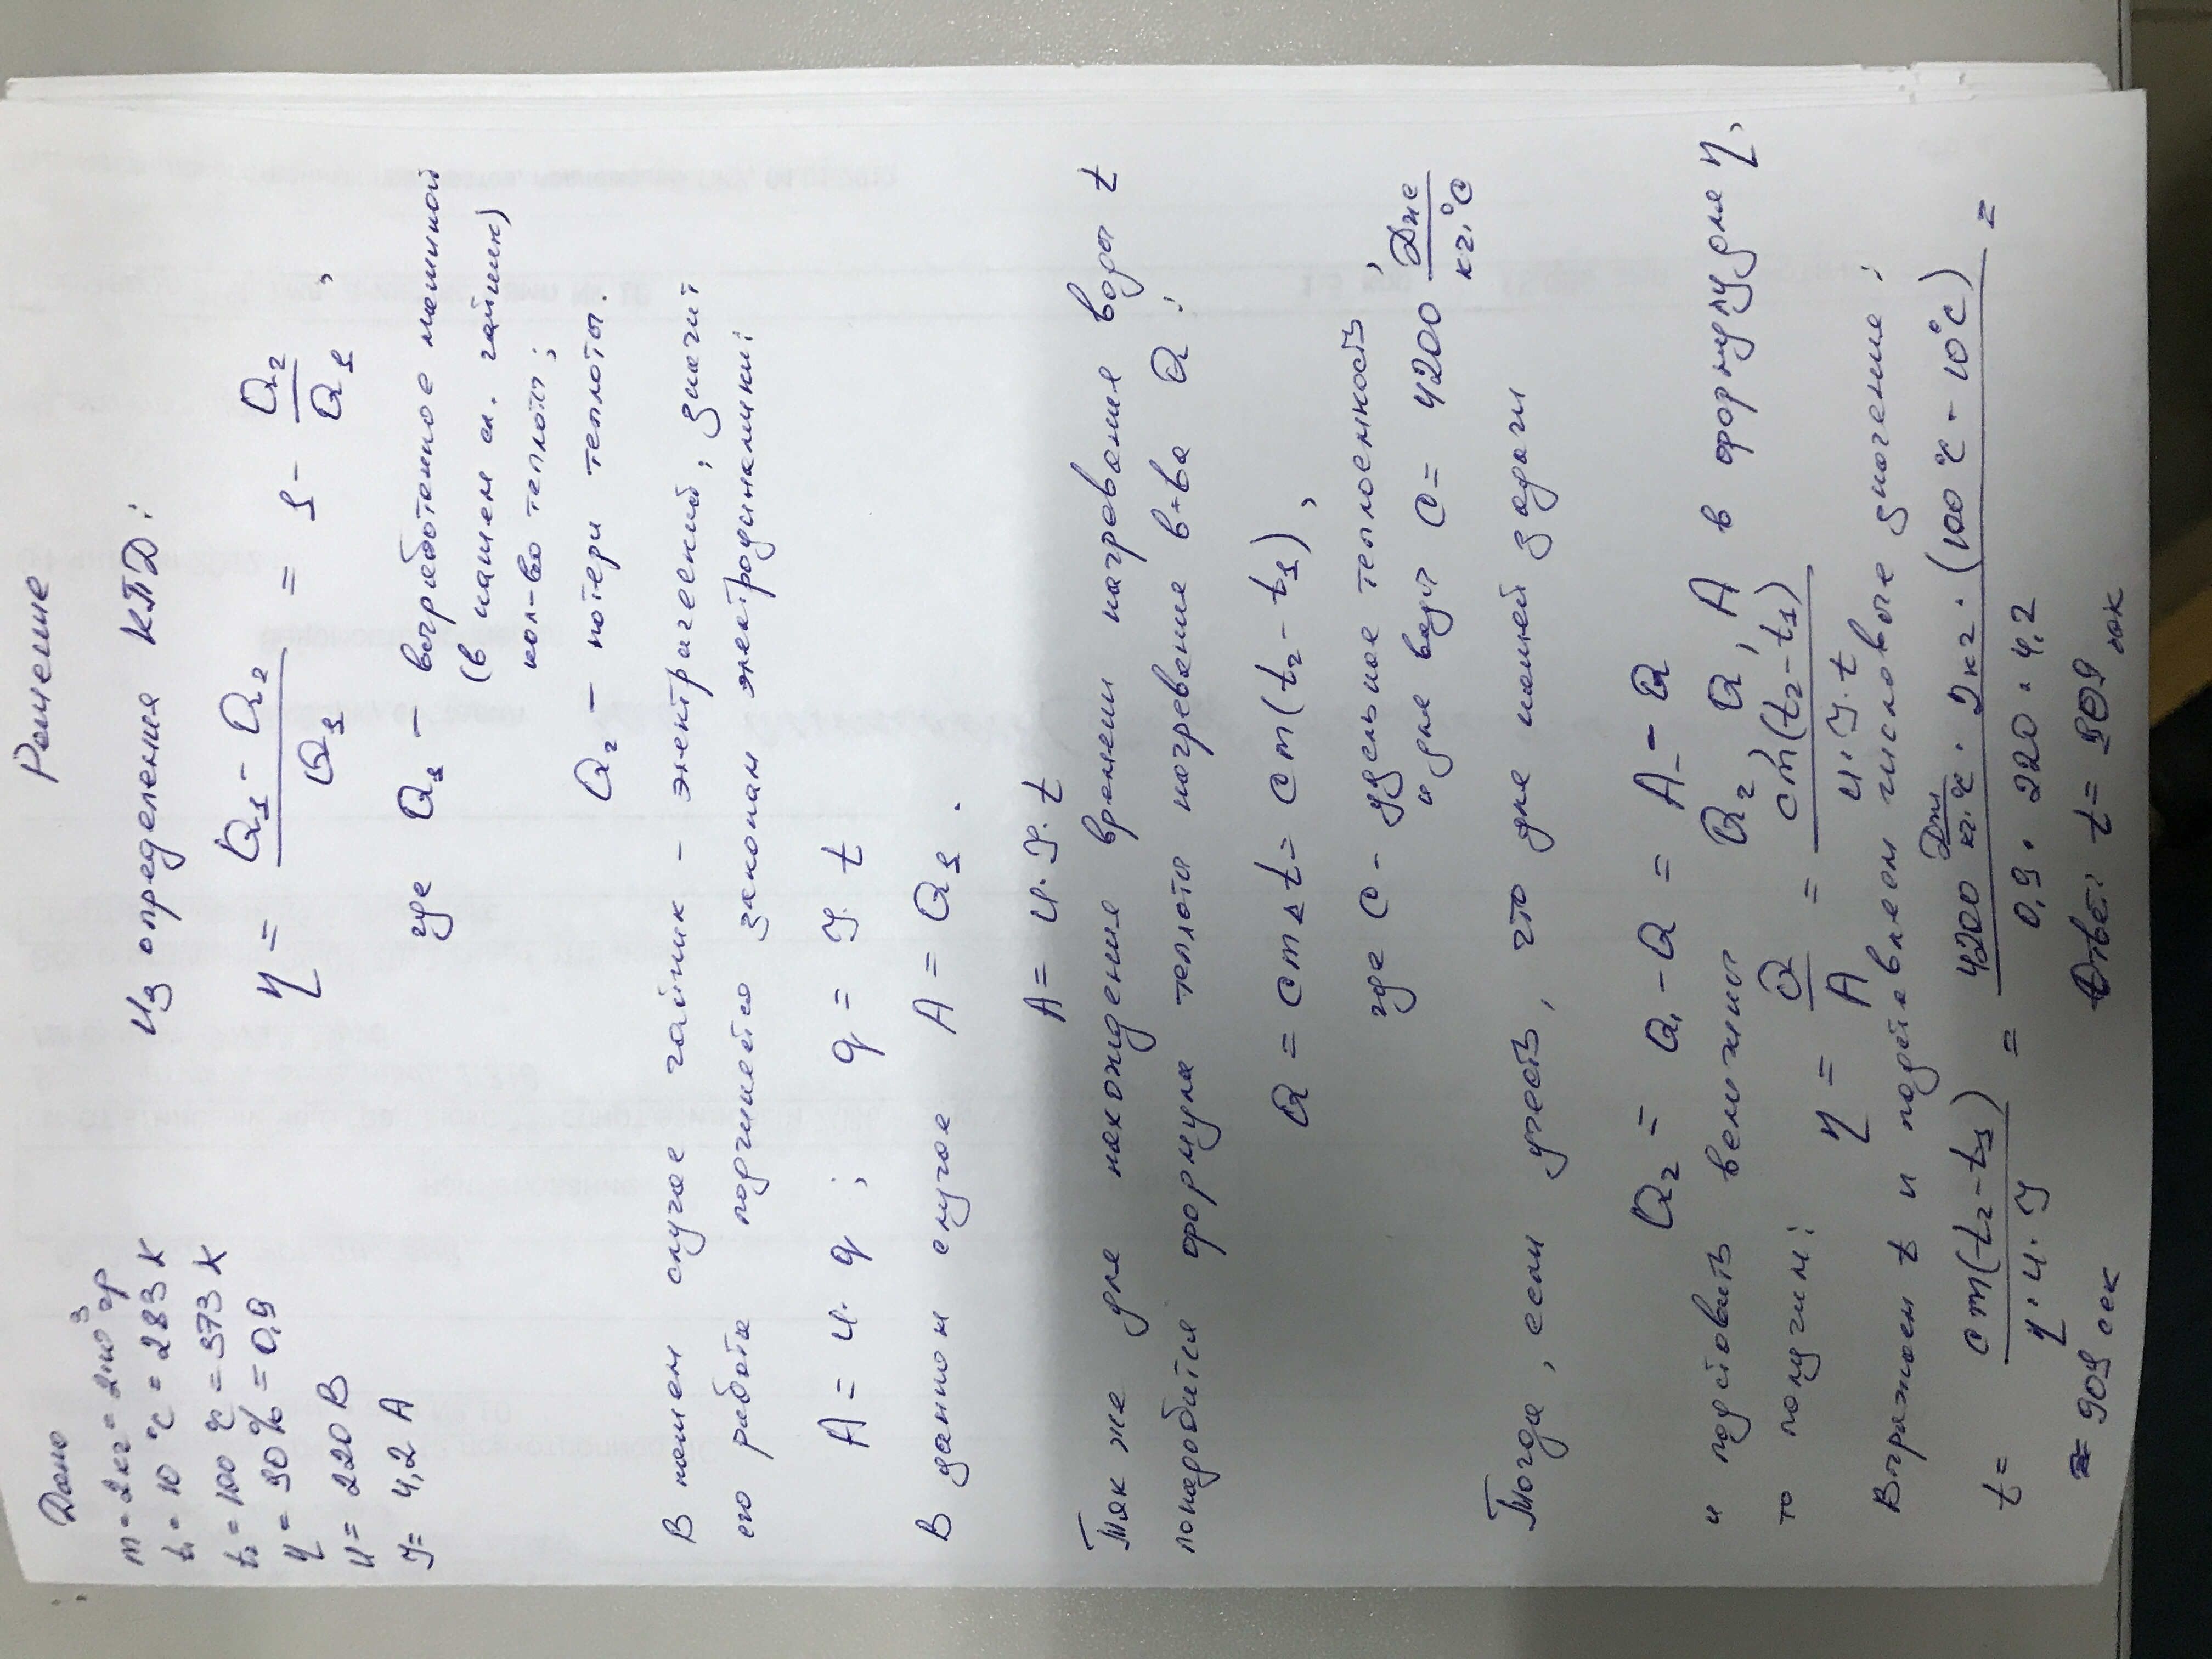 Дано
m = 2 кг = 2·10³ гр
t₁ = 10 °C = 283 K
t₂ = 100 °C = 373 K
η = 90% = 0,9
U = 220 В
I = 4,2 А
Решение
Из определения КПД:
η = (Q₁ - Q₂) / Q₁ = 1 - Q₂ / Q₁ ,
где Q₁ - выработанное машиной
(в нашем эл. чайник)
кол-во теплоты;
Q₂ - потери теплоты.
В нашем случае чайник - электрический, значит
его работа подчиняется законам электродинамики:
A = U · q ; q = I · t
В данном случае A = Q₁ .
A = U · I · t
Так же для нахождения времени нагревания воды t
понадобится формула теплоты нагревание в-ва Q :
Q = cmΔt = cm(t₂ - t₁) ,
где c - удельная теплоемкость,
и для воды c = 4200 Дж / кг·°C
Тогда , если учесть , что для нашей задачи
Q₂ = Q₁ - Q = A - Q
и подставить величины Q₂, Q, A в формулу для η,
то получим: η = Q / A = cm(t₂ - t₁) / U · I · t
Выражаем t и подставляем числовые значение :
t = cm(t₂ - t₁) / η · U · I = 4200 Дж / кг·°C · 2 кг · (100 °C - 10°C) / 0,9 · 220 · 4,2 =
≈ 909 сек
Ответ: t = 909 сек